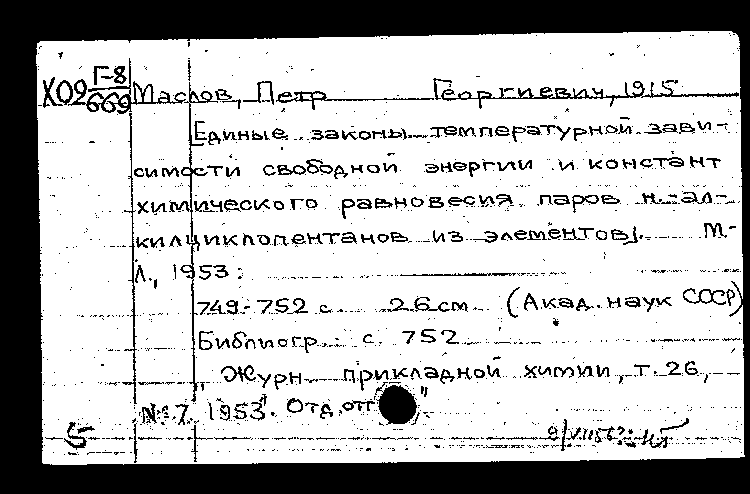 Х09 Г-8
669 Маслов, Петр Георгиевич, 1915
[Единые законы температурной зави-
симости свободной энергии и констант
химического равновесия паров н.-ал-
килциклопентанов из элементов]. М-
Л., 1953.
749-752 с. 26 см (Акад. наук СССР)
Библиогр.: с. 752
„Журн. прикладной химии, т. 26,
№ 7, 1953". Отд. отт"
5